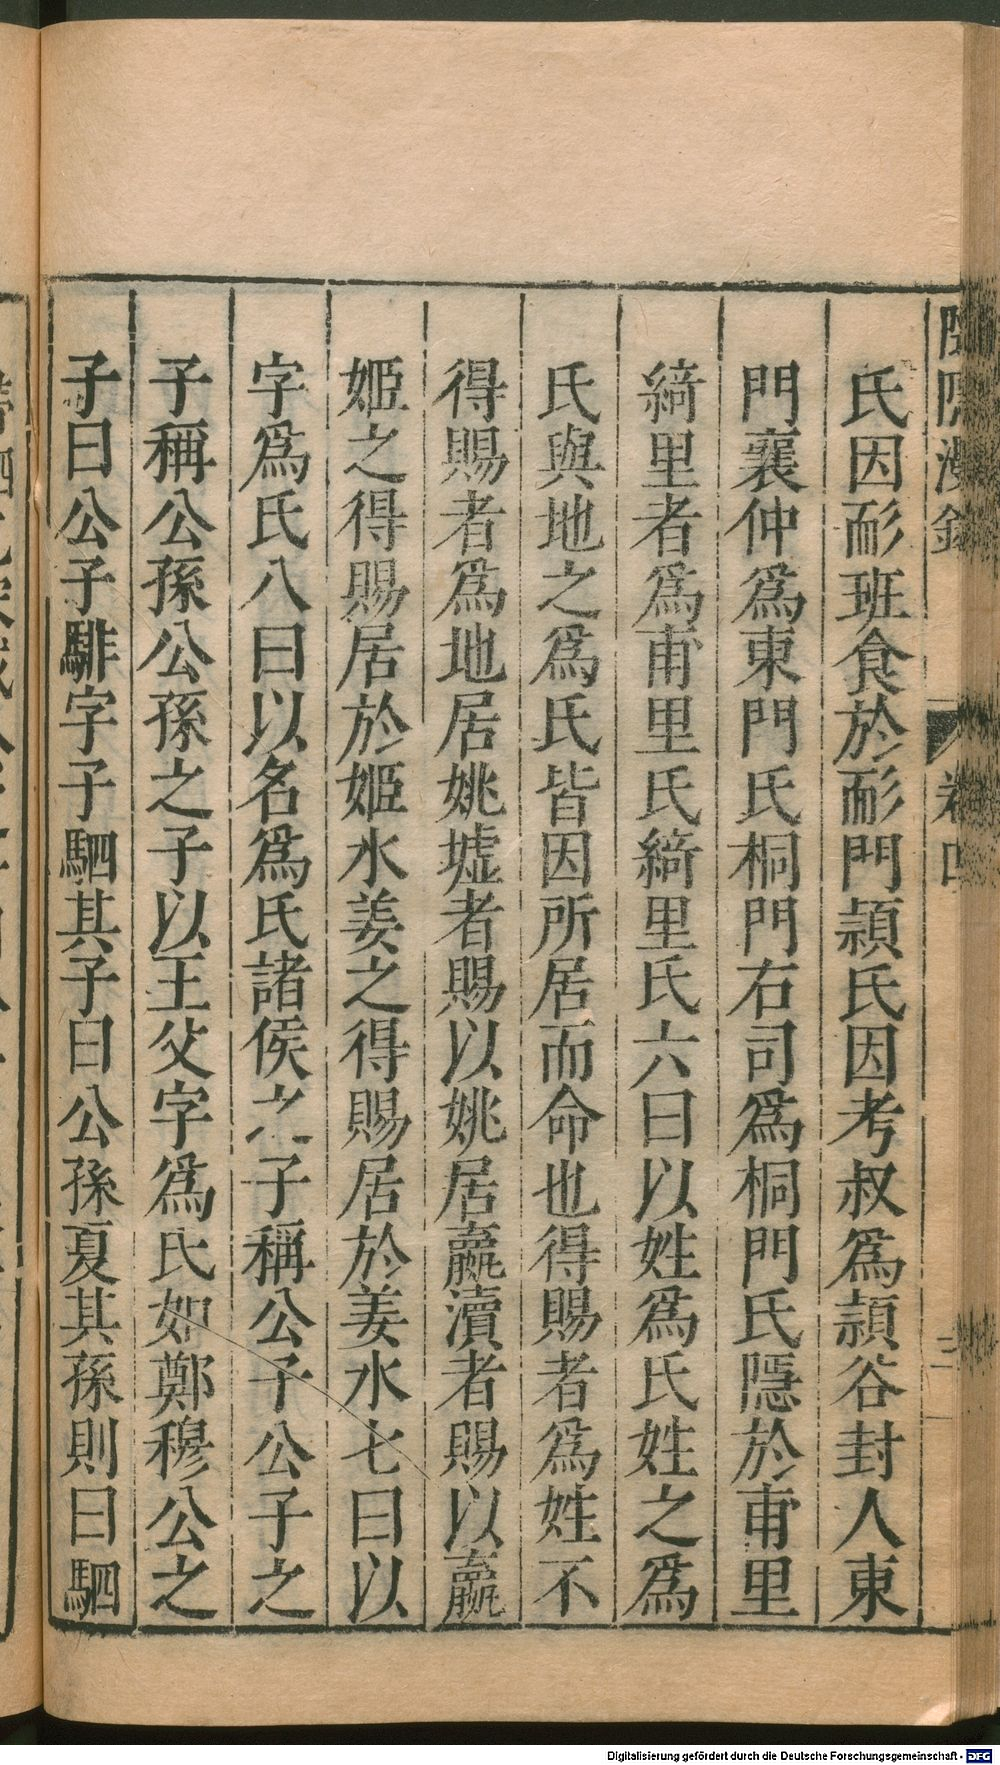 氏因耏班食於耏門頴氏因考叔爲頴谷封人東
門襄仲爲東門氏桐門右司爲桐門氏隱於甫里
綺里者爲甫里氏綺里氏六曰以姓爲氏姓之爲
氏與地之爲氏皆因所居而命也得賜者爲姓不
得賜者爲地居姚墟者賜以姚居嬴瀆者賜以嬴
姬之得賜居於姬水姜之得賜居於姜水七曰以
字爲氏八曰以名爲氏諸侯之子稱公子公子之
子稱公孫公孫之子以王父字爲氏如鄭穆公之
子曰公子騑字子駟其子曰公孫夏其孫則曰駟
卷四
Digitalisierung gefördert durch die Deutsche Forschungsgemeinschaft - DFG